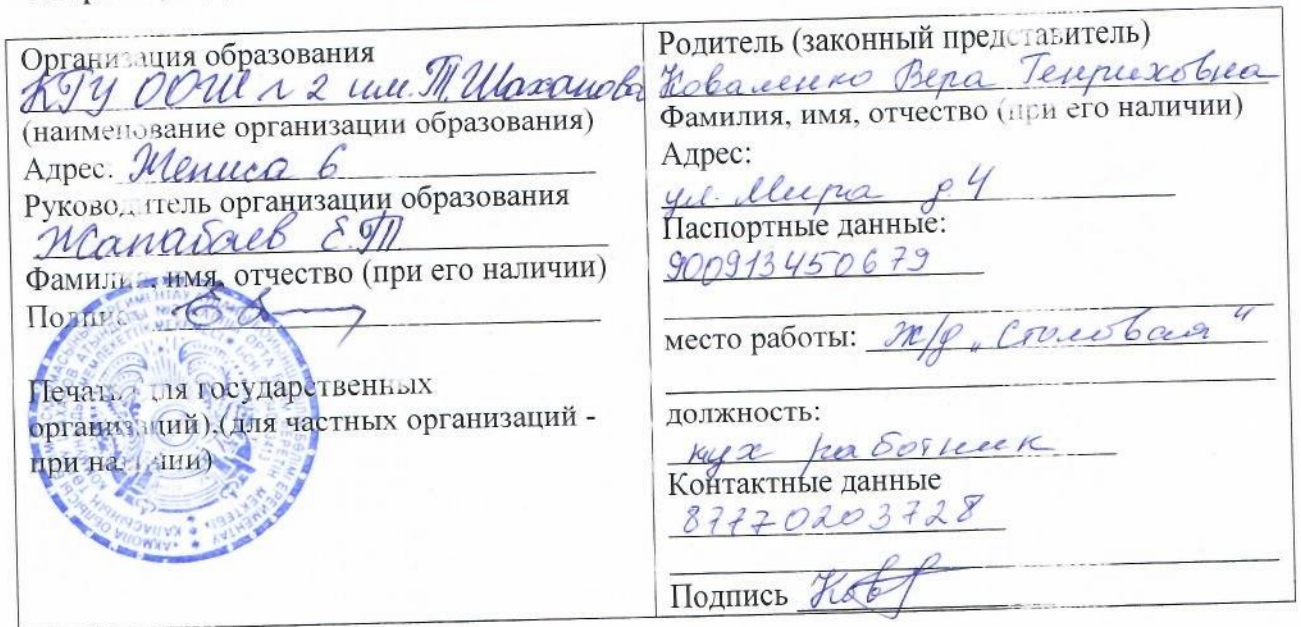 Организация образования
КГУ ООШ №2 им. Т. Шаханова
(наименование организации образования)
Адрес: Жениса 6
Руководитель организации образования
Жапабаев Е.Т.
Фамилия, имя, отчество (при его наличии)
Подпись
Печать (для государственных
организаций),(для частных организаций -
при наличии)
Родитель (законный представитель)
Коваленко Вера Генриховна
Фамилия, имя, отчество (при его наличии)
Адрес:
ул. Мира д. 4
Паспортные данные:
900913450679
место работы: Ж/д „Столовая"
должность:
кух работник
Контактные данные
87770203728
Подпись Ков